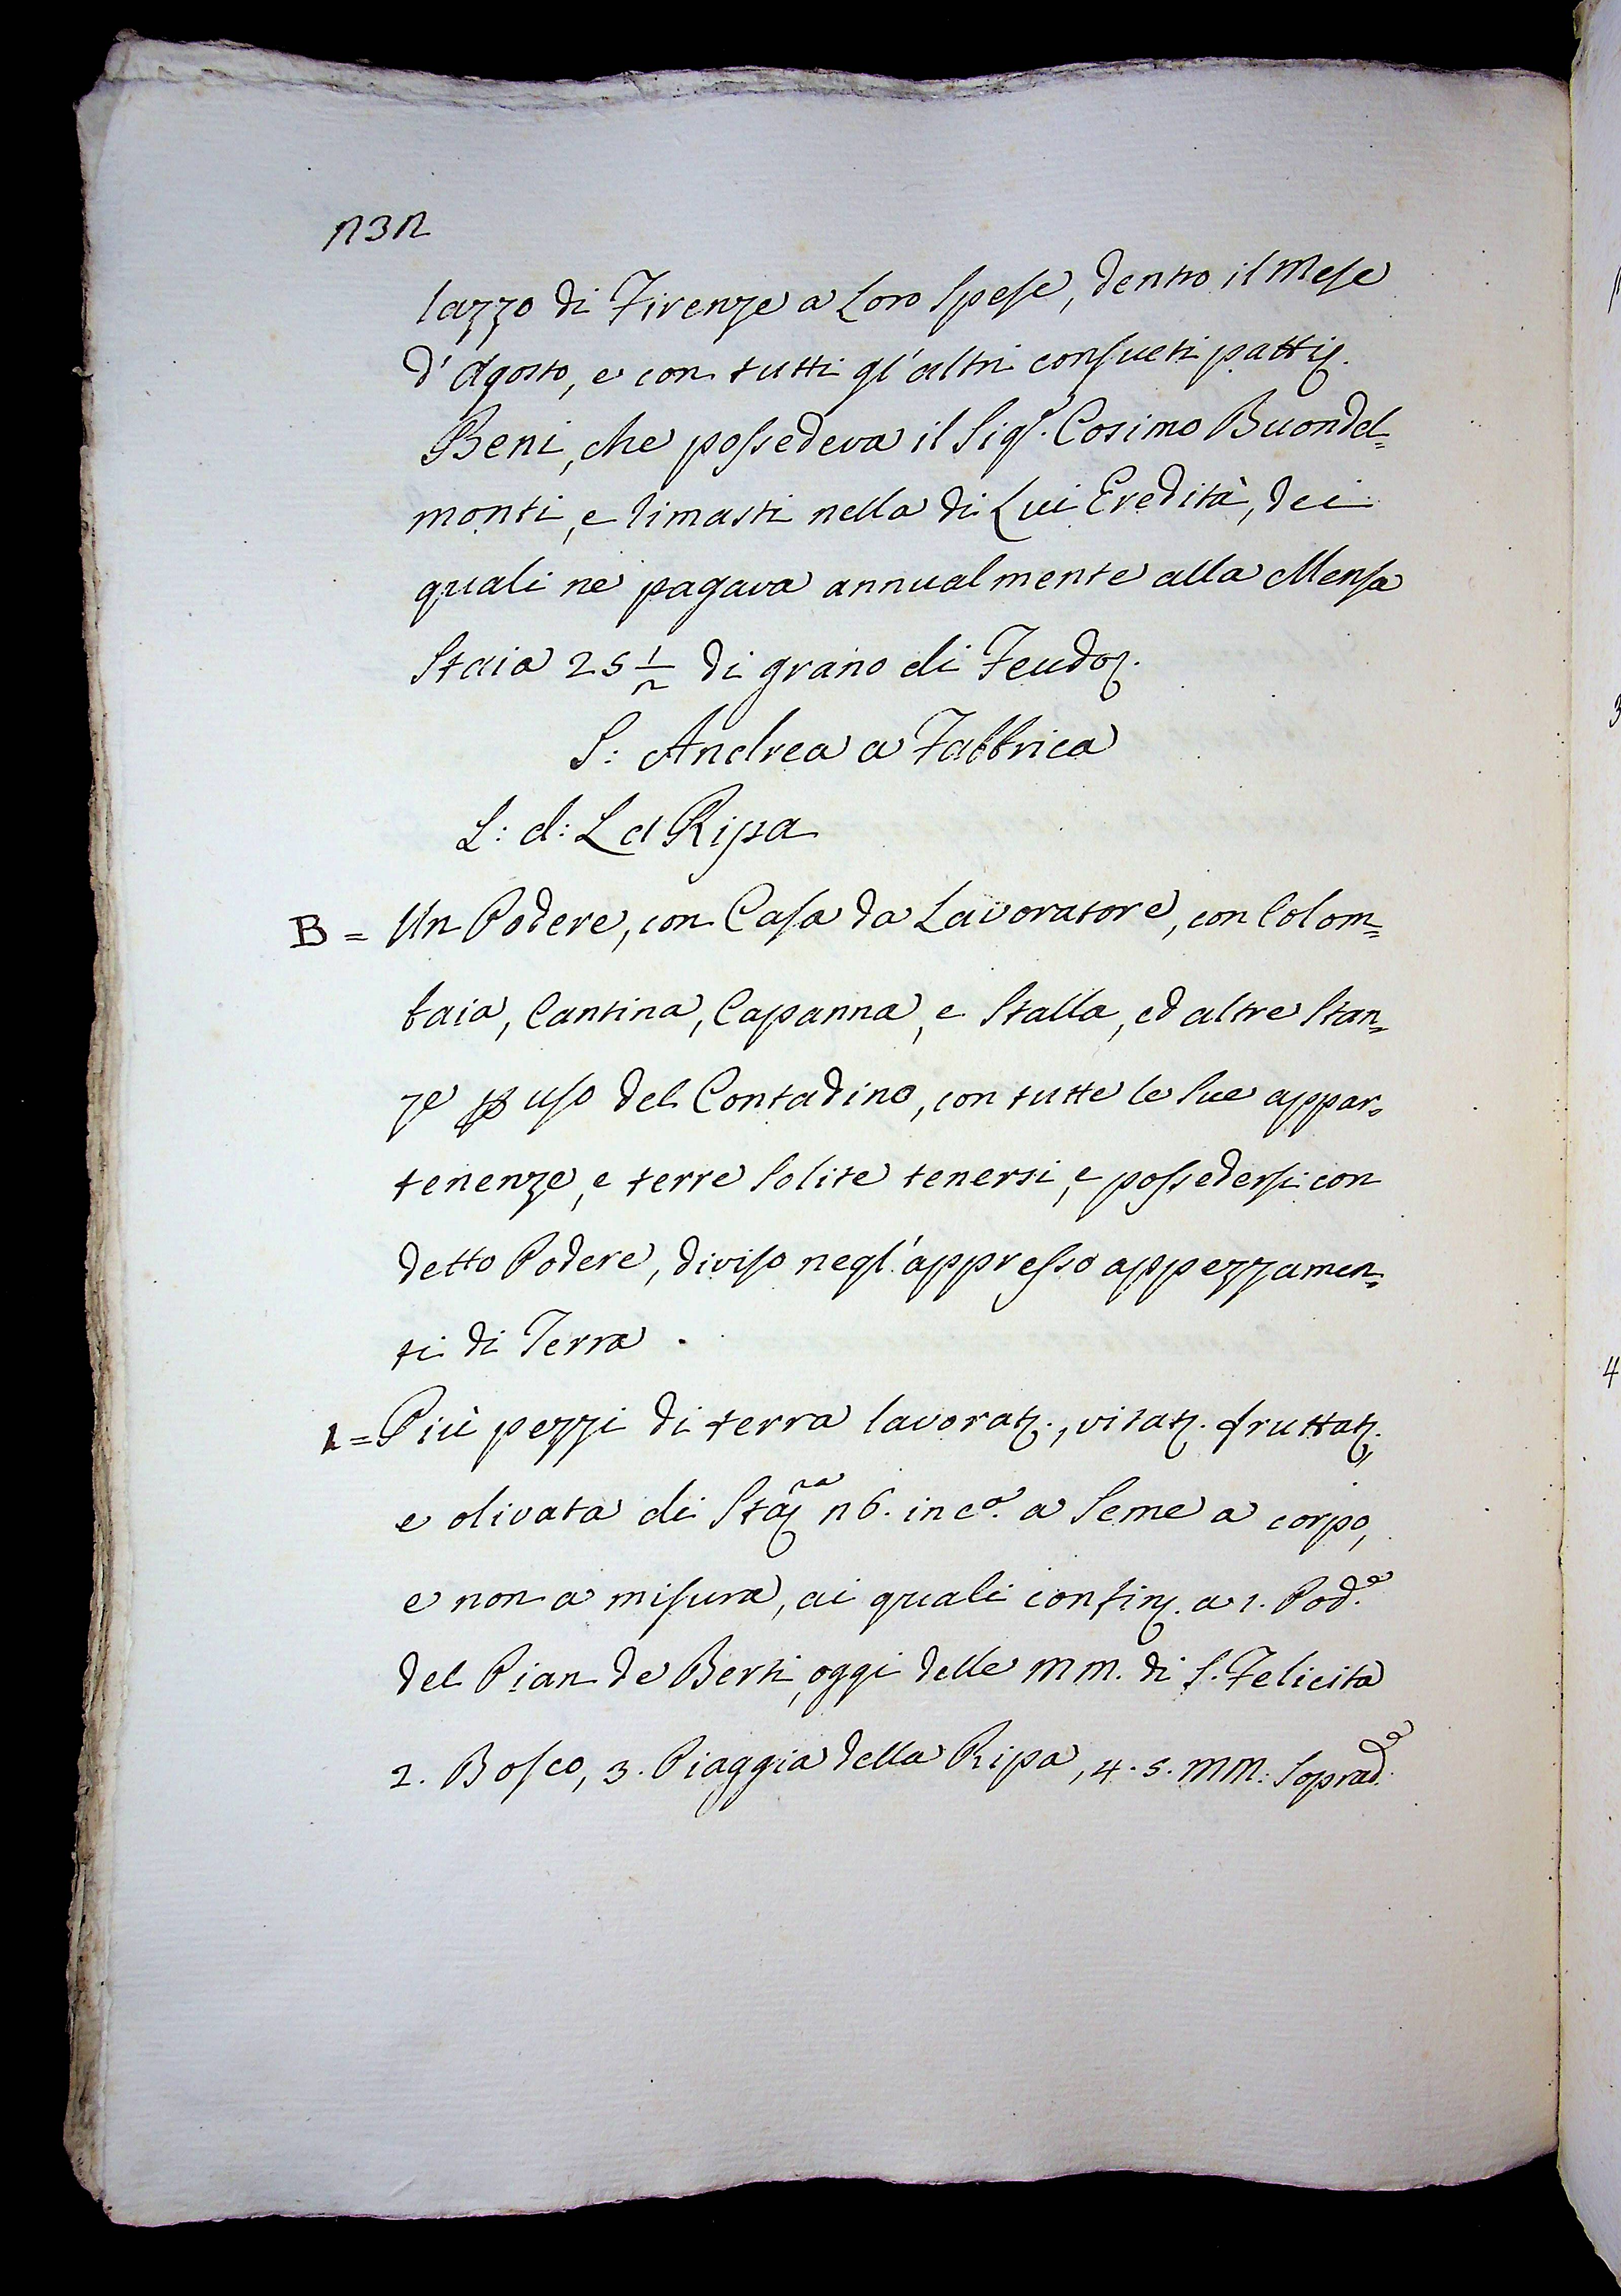 232
lazzo di Firenze a Loro Spese, dentro il Mese
d'Agosto, e con tutti gl'altri consueti patti.
Beni, che possedeva il Sigr. Cosimo Buondel=
monti, e rimasti nella di Lui Eredità, dei
quali ne pagava annualmente alla Mensa
Staia 25 1/2 di grano di Feudo.
S: Andrea a Fabbrica
L: d: La Ripa
B = Un Podere, con Casa da Lavoratore, con Colom=
baia, Cantina, Capanna, e Stalla, ed altre Stan=
ze p uso del Contadino, con tutte le Sue appar=
tenenze, e terre Solite tenersi, e possedersi con
detto Podere, diviso negl'appresso appezzamen=
ti di Terra.
1 = Più pezzi di terra lavorat., vitat. fruttat.,
e olivata di Stara 26. in ca. a Seme a corpo,
e non a misura, ai quali confin. a 1. Pode.
del Pian de Berti, oggi delle MM. di S. Felicita
2. Bosco, 3. Piaggia della Ripa, 4. 5. MM. Soprade.